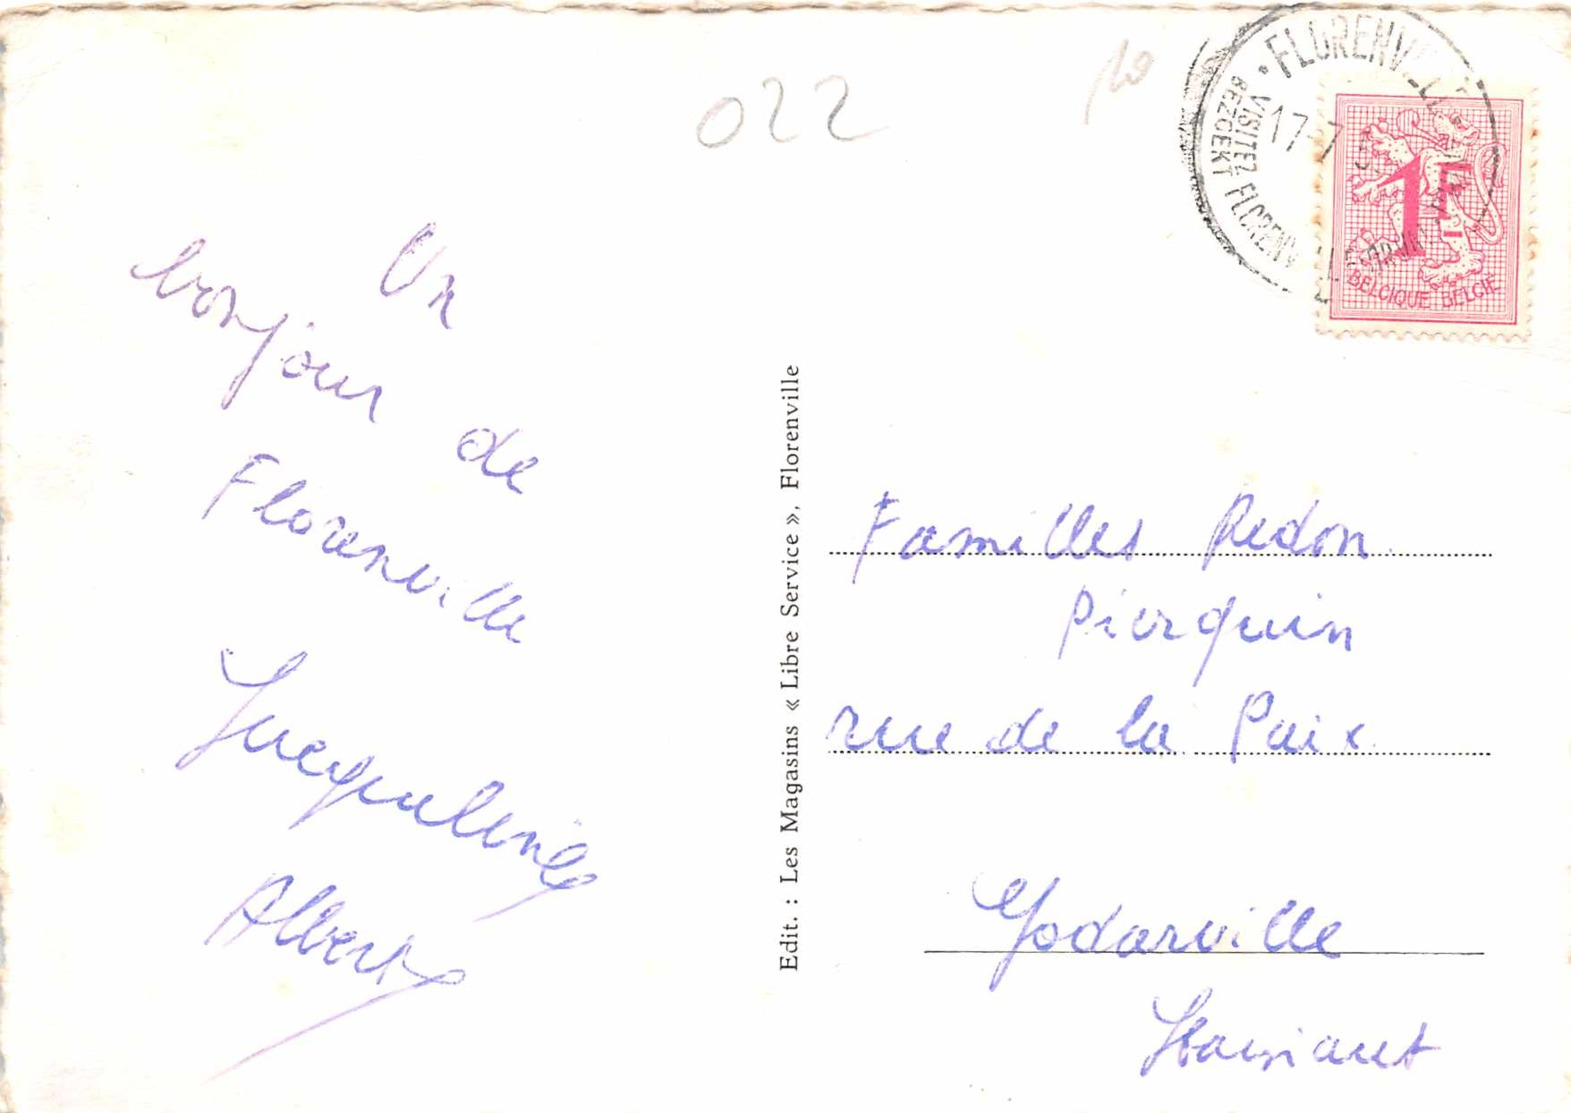 022
Un
bonjour de
Florenville
Jacqueline
Albert
Edit. : Les Magasins « Libre Service », Florenville
FLORENVILLE
VISITEZ FLORENVILLE
BEZOEKT
17-7
1F
BELGIQUE BELGIË
Familles Redon
Pierquin
rue de la Paix
Godarville
Hainaut